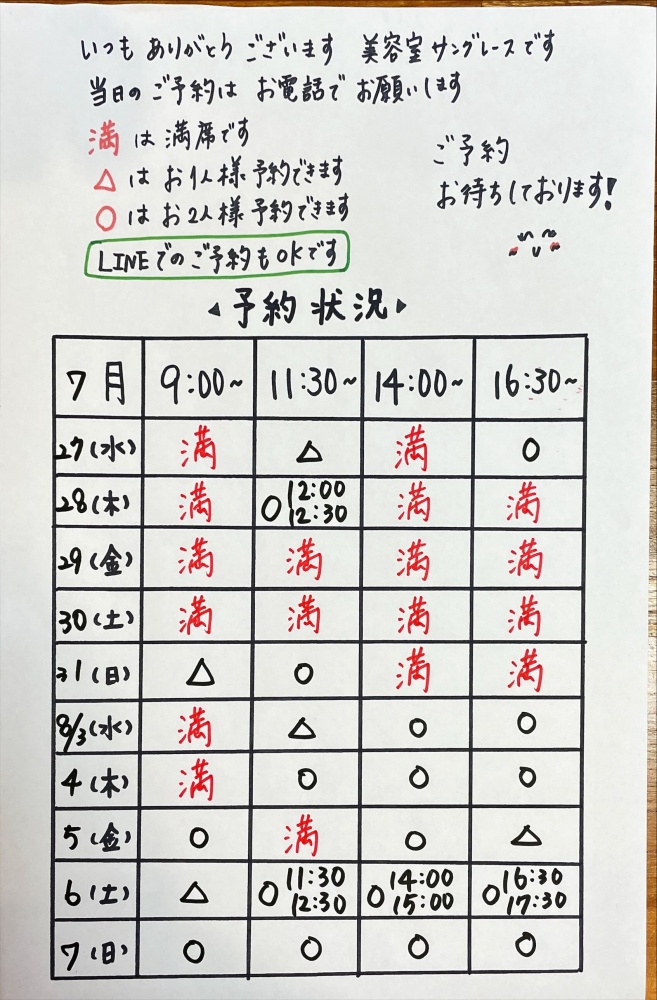 いつも ありがとうございます 美容室サングレースです
当日のご予約は お電話で お願いします
満 は満席です
△は お1人様予約できます
○はお2人様予約できます
LINEでのご予約もOKです
ご予約
お待ちしております!
◀予約状況▶
7月 9:00~ 11:30~ 14:00~ 16:30~
27(水) 満 △ 満 ○
28(木) 満 ○12:00 12:30 満 満
29(金) 満 満 満 満
30(土) 満 満 満 満
31(日) △ ○ 満 満
8/3(水) 満 △ ○ ○
4(木) 満 ○ ○ ○
5(金) ○ 満 ○ △
6(土) △ ○11:30 12:30 ○14:00 15:00 ○16:30 17:30
7(日) ○ ○ ○ ○